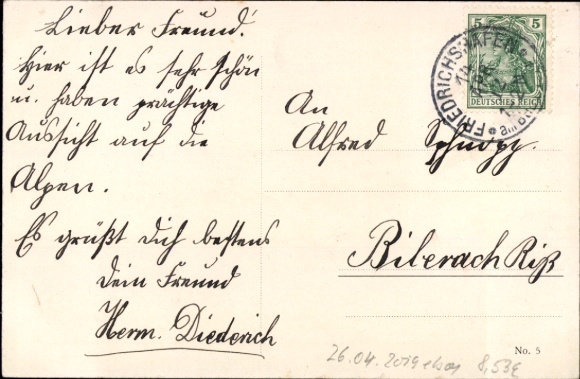 Lieber Freund!
Hier ist es sehr schön
u. haben prächtige
Aussicht auf die
Alpen.
Es grüßt Dich bestens
Dein Freund
Herm. Diederich
An
Alfred
Biberach Riß
5 5
DEUTSCHES REICH
FRIEDRICHSHAFEN
No. 5
26.04.2019 ebay 8,53€